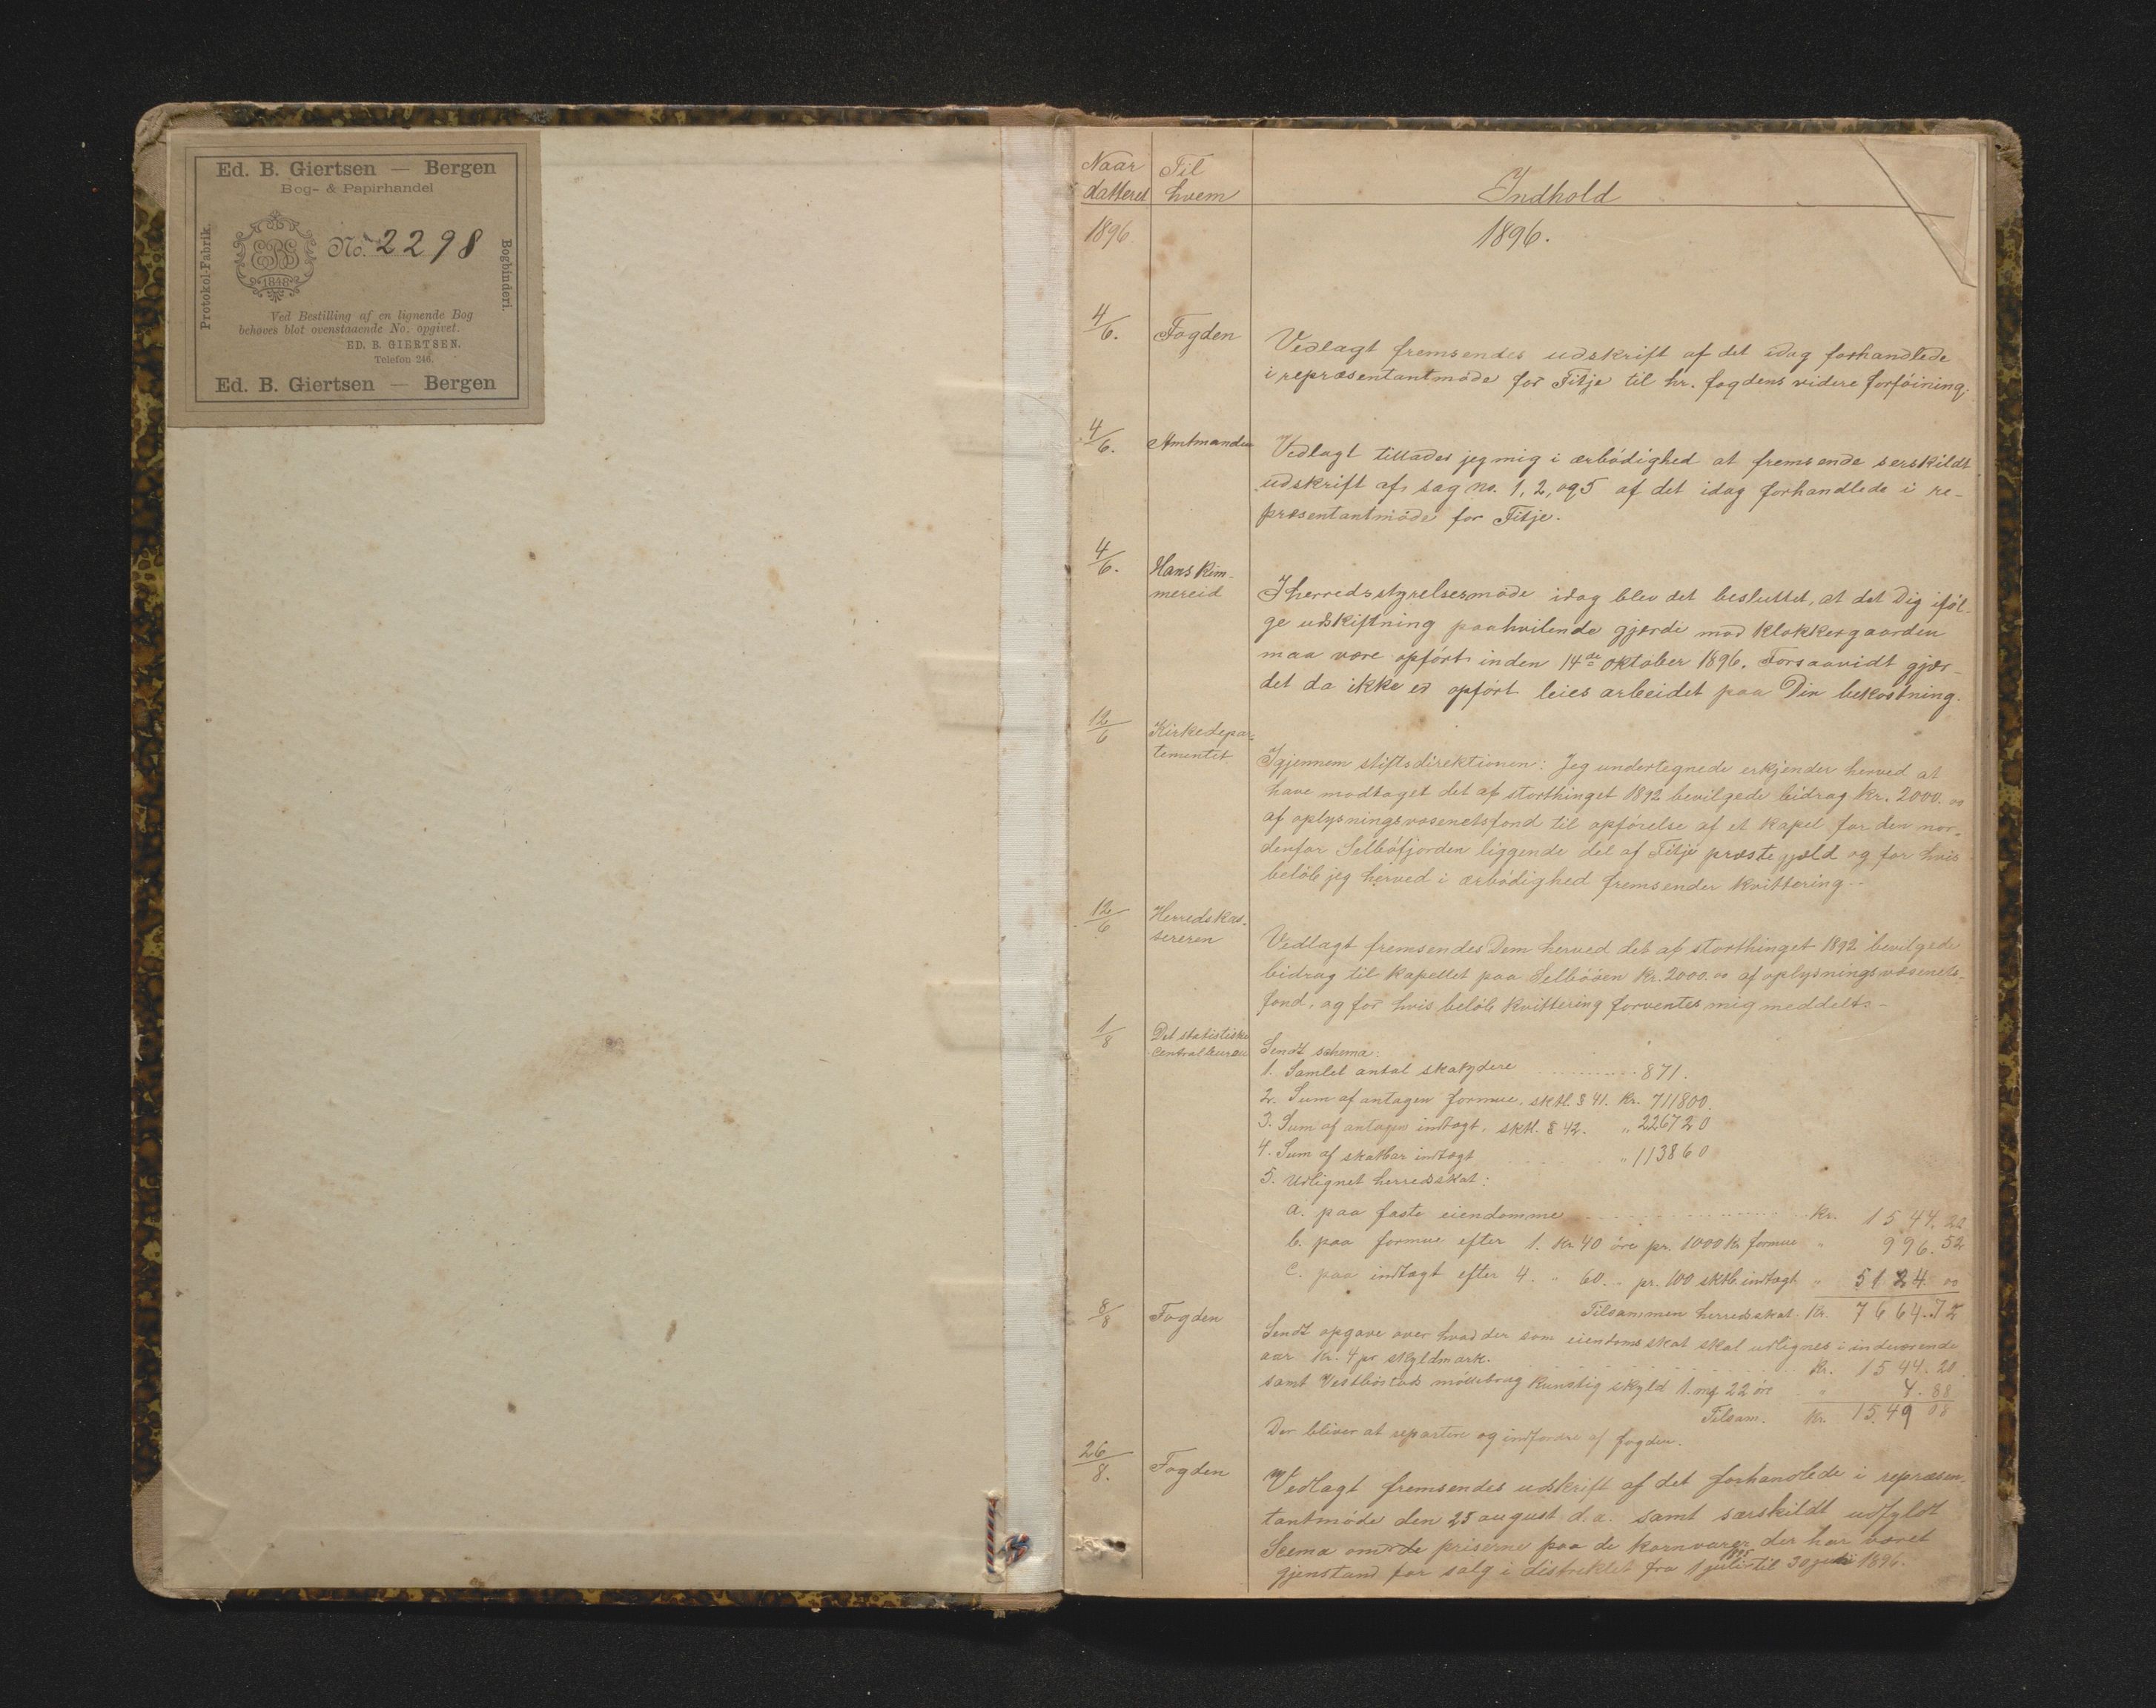 Ed. B. Giertsen — Bergen
Bog- & Papirhandel
Protokol-Fabrik.
EBG
1848
No. 2298
Bogbinderi.
Ved Bestilling af en lignende Bog
behøves blot ovenstaaende No. opgivet.
ED. B. GIERTSEN.
Telefon 246.
Ed. B. Giertsen — Bergen
Naar datteret
Til hvem
Indhold
1896
1896.
4/6. Fogden
Vedlagt fremsendes udskrift af det idag forhandlede
i repræsentantmøde for Fitje til hr. fogdens videre forføining.
4/6. Amtmanden
Vedlagt tillader jeg mig i ærbødighed at fremsende serskildt
udskrift af sag no. 1, 2, og 5 af det idag forhandlede i re-
præsentantmøde for Fitje.
4/6. Hans Rim-
mereid
I herredsstyrelsesmøde idag blev det besluttet, at det Dig iføl-
ge udskiftning paahvilende gjærde mod klokkergaarden
maa være opført inden 14de oktober 1896. Forsaavidt gjær-
det da ikke er opført leies arbeidet paa Din bekostning.
12/6 Kirkedepar-
tementet
Igjennem stiftsdirektionen: Jeg undertegnede erkjender herved at
have modtaget det af storthinget 1892 bevilgede bidrag Kr. 2000.00
af oplysningsvæsenetsfond til opførelse af et kapel for den nor-
denfor Selbøfjorden liggende del af Fitje præstegjæld og for hvis
beløb jeg herved i ærbødighed fremsender kvittering.-
12/6 Herredskas-
sereren
Vedlagt fremsendes Dem herved det af storthinget 1892 bevilgede
bidrag til kapellet paa Selbøøen Kr. 2000.00 af oplysningsvæsenets-
fond, og for hvis beløb kvittering forventes mig meddelt.-
1/8 Det statistiske
Centralbureau
Sendt schema:
1. Samlet antal skatydere 871.
2. Sum af antagen formue, sktl. § 41. Kr. 711800.
3. Sum af antagen indtægt, sktl. § 42. " 226720
4. Sum af skatbar indtægt " 113860
5. Udlignet herredsskat:
a. paa faste eiendomme Kr. 1544.20
b. paa formue efter 1. Kr 40 øre pr. 1000 Kr formue " 996.52
c. paa indtægt efter 4. " 60. " pr. 100 sktb. indtægt " 5124.00
Tilsammen herredsskat. Kr. 7664.72
8/8 Fogden
Sendt opgave over hvad der som eiendomsskat skal udlignes i indeværende
aar Kr. 4 pr skyldmark. Kr. 1544.20
samt Vestbøstads møllebrug kunstig skyld 1. mk 22 øre " 4.88
Tilsam. Kr. 1549 08
Der bliver at repartere og indfordre af fogden.
26/8. Fogden
Vedlagt fremsendes udskrift af det forhandlede i repræsen-
tantmøde den 25 august d. a. samt særskildt udfyldt
Scema om de priserne paa de kornvarer der har været
gjenstand for salg i distriktet fra 1 juli 1895 til 30 juni 1896.